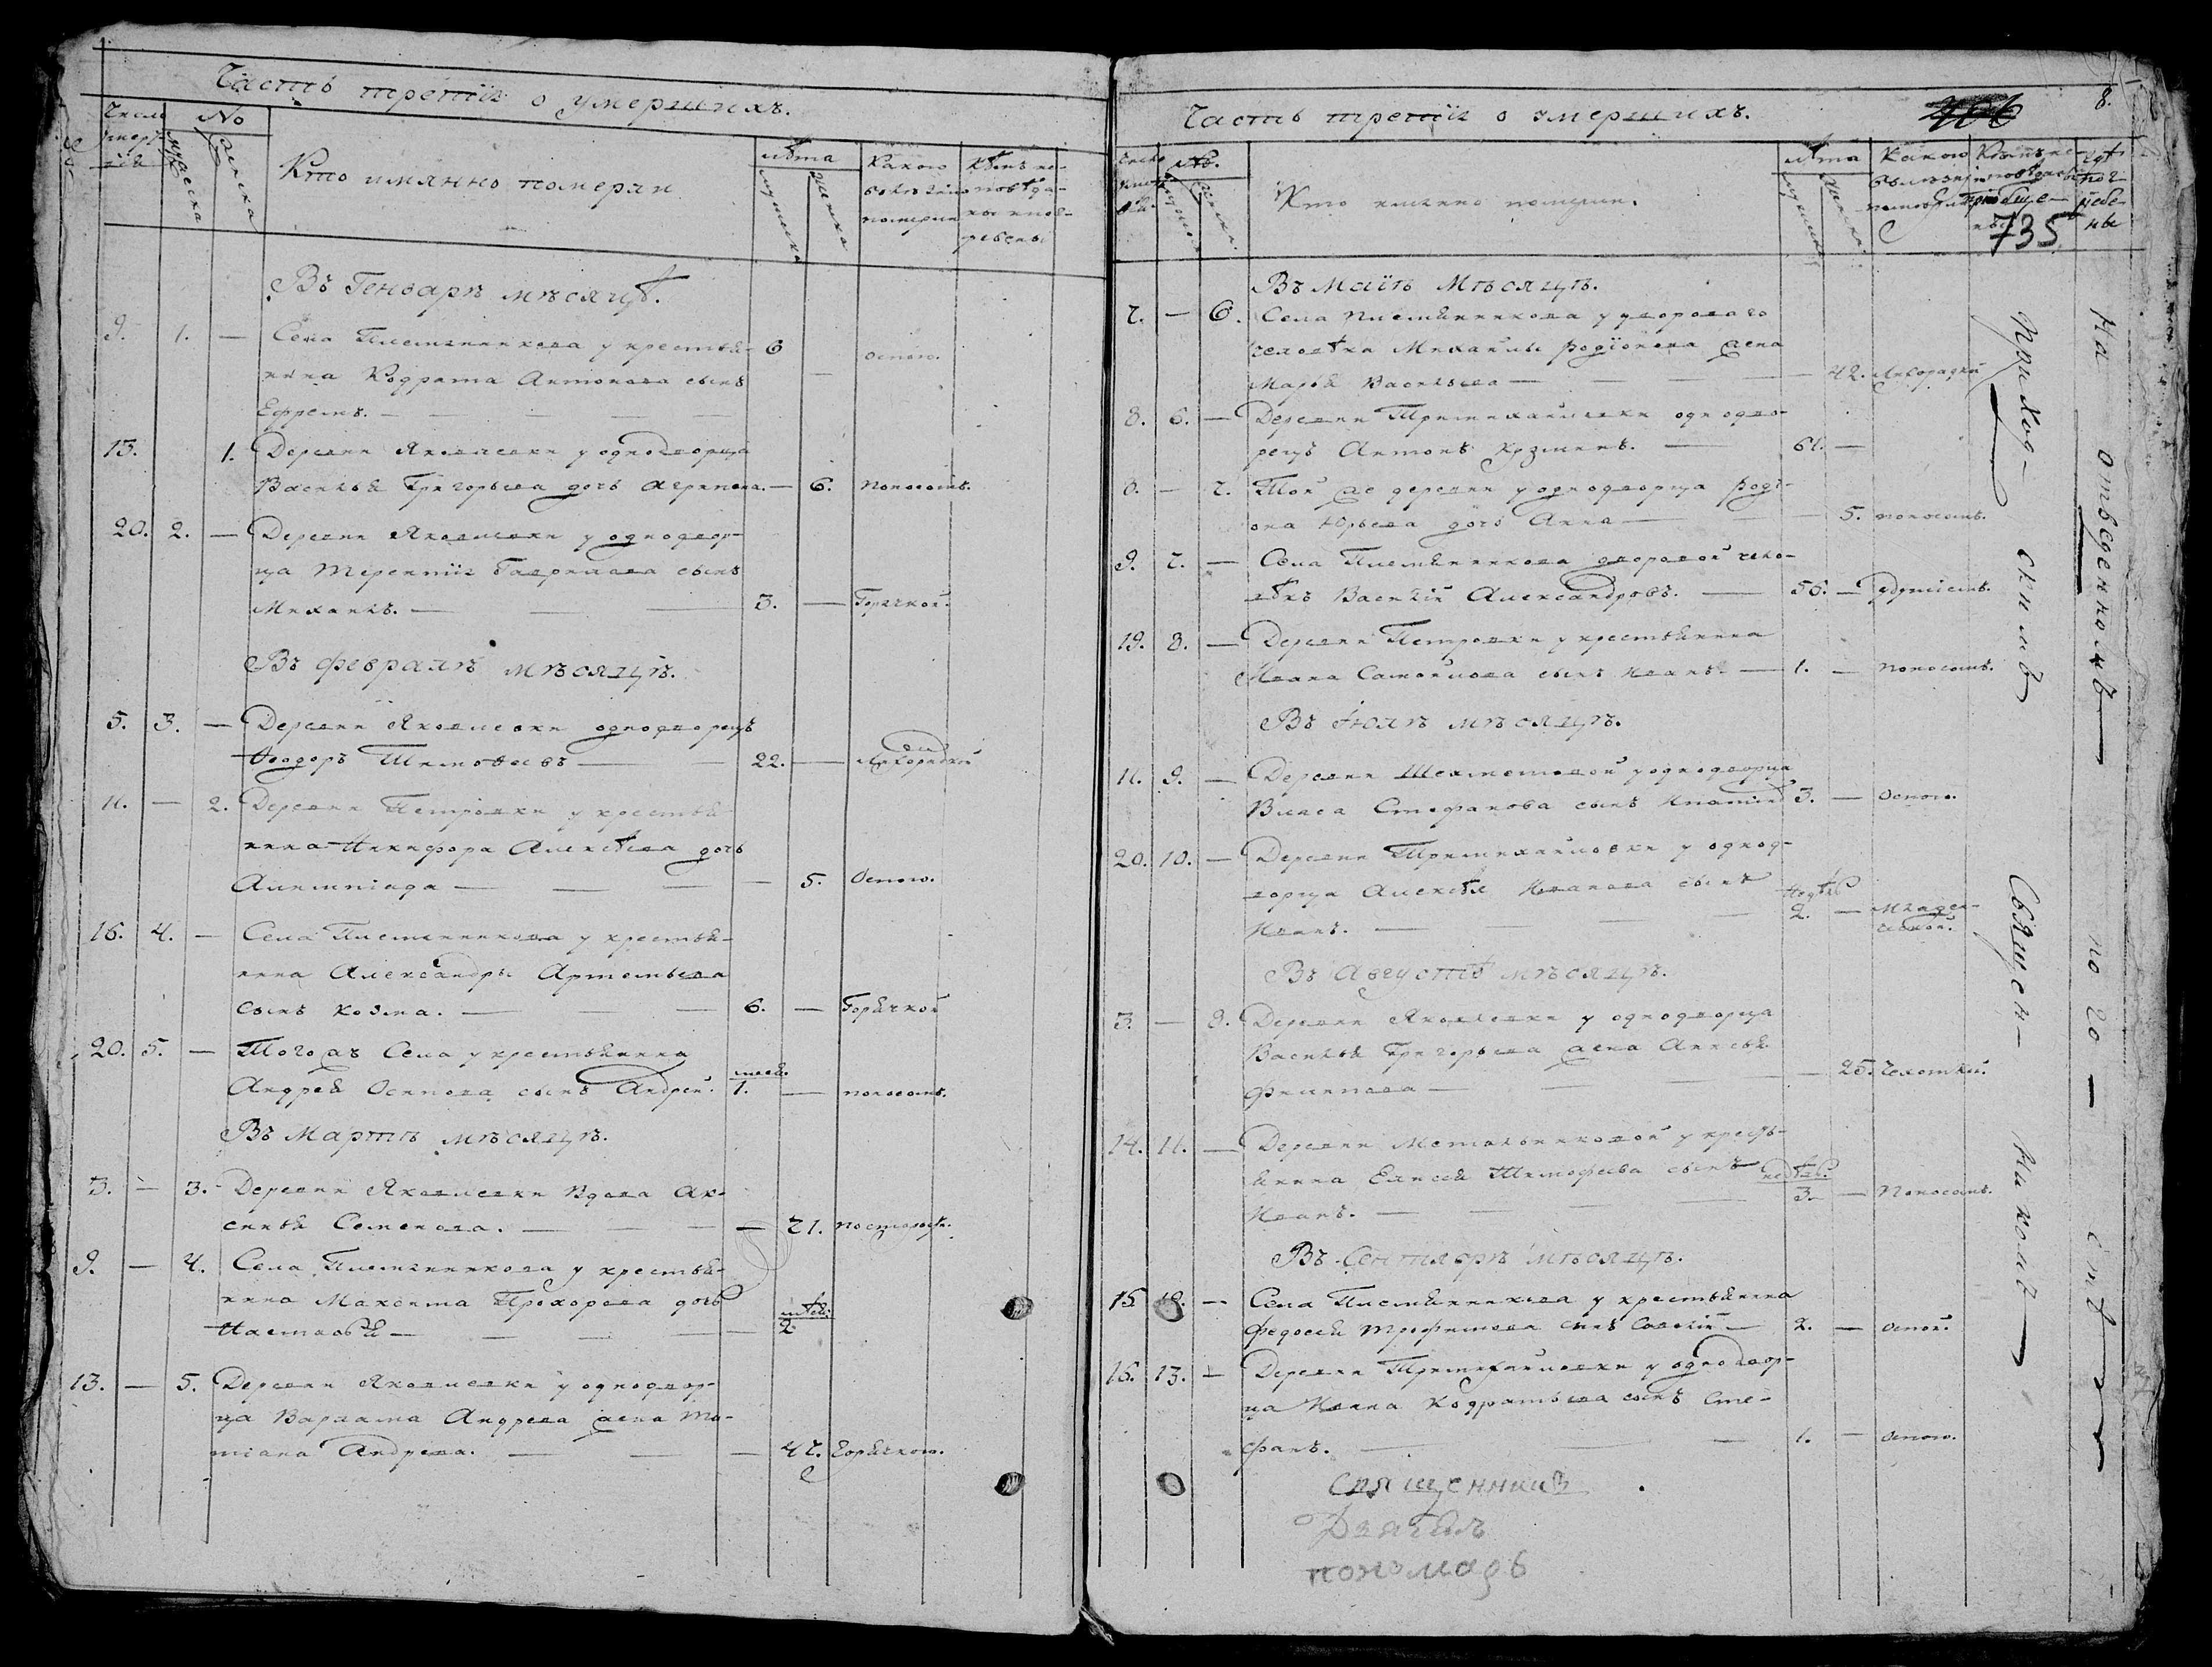 Часть третія о умершихъ.
Число умерт- вій
№
мужеска
женска
Кто имянно померли
лѣта
мужеска
женска
Какою болезнію померли
Кѣмъ исповѣда- ны
Въ Генварѣ мѣсяцѣ.
9. 1. — Села Племянникова у крестья- 6 — оспою.
нина Кодрата Антонова сынъ
Ефремъ. —
13. 1. Деревни Яковлевки у однодворца
Василья Григорьева дочь Агрипена. — 6. поносомъ.
20. 2. — Деревни Яковлевки у однодвор-
ца Терентія Гаврилова сынъ
Михаилъ. — 3. — Горячкой.
Въ февралѣ мѣсяцѣ.
5. 3. — Деревни Яковлевки однодворецъ
Ѳеодоръ Тимоѳеевъ — 22. — Лихорадкой
11. — 2. Деревни Петровки у крестья-
нина Никифора Алексѣева дочь
Алимпіада — — 5. Оспою.
16. 4. — Села Племянникова у крестья-
нина Александры Артемьева
сынъ Козма. — 6. — Горячкой
20. 5. — Тогожъ Села у крестьянина
Андрея Осипова сынъ Андрей. 1. — поносомъ.
Въ Мартѣ мѣсяцѣ.
3. — 3. Деревни Яковлевки Вдова Ак-
синья Семенова. — — 71. по старости.
9. — 4. Села Племянникова у крестья-
нина Максима Прохорова дочь
Настасья — — 2
13. — 5. Деревни Яковлевки у однодвор-
ца Варлама Андреева жена Та-
тіана Андреева. — — 47. Горячкою.
Часть третія о умершихъ.
8.
№.
Кто имянно померли.
лѣта
Какою болезнію померли
735
Въ Маіѣ Мѣсяцѣ.
7. — 6. Села Племянникова у двороваго
человѣка Михайлы Родіонова жена
Марья Васильева — — 42. Лихорадкой
8. 6. — Деревни Тримихайловки однодво-
рецъ Антонъ Кузминъ. — 61. —
8. — 7. Той же деревни у однодворца Роді-
она Юрьева дочь Анна — — 5. поносомъ.
9. 7. — Села Племянникова дворовой чело-
вѣкъ Василій Александровъ. — 56. —
19. 8. — Деревни Петровки у крестьянина
Ивана Самойлова сынъ Иванъ. — 1. — поносомъ.
Въ Іюлѣ мѣсяцѣ.
11. 9. — Деревни Шехметовой у однодворца
Власа Стефанова сынъ Ипатій 3. — Оспою.
20. 10. — Деревни Тримихайловки у однод-
ворца Алексѣя Иванова сынъ недѣл
Иванъ. — 2. — Младен-
ческой.
Въ Августѣ мѣсяцѣ.
3. — 8. Деревни Яковлевки у однодворца
Василья Григорьева жена Анисья
Филипова — — 25. Чехоткой.
14. 11. — Деревни Метальниковой у кресть-
янина Елисея Тимофеева сынъ недѣл.
Иванъ. — 3. — Поносомъ.
Въ Сентябрѣ мѣсяцѣ.
15 12. — Села Племянникова у крестьянина
Федосея Трофимова сынъ Савелій — 2. — оспой.
16. 13. — Деревни Тримихайловки у однодвор-
ца Ивана Кодратьева сынъ Сте-
фанъ. — 1. — оспою.
священникъ
Дьячекъ
пономарь
Приход- скимъ Священ- никомъ
На отведенномъ по 20 —